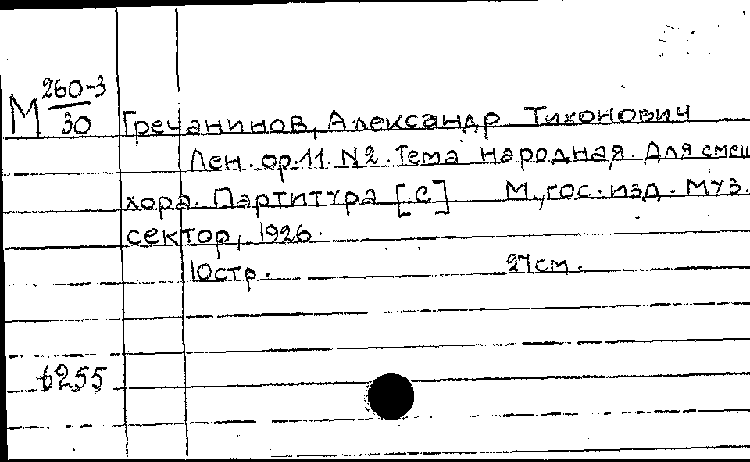 М 260-3
30
Гречанинов, Александр Тихонович
Лен. ор.11. N2. Тема народная. Для смеш
хора. Партитура [с] М., гос. изд. муз.
сектор, 1926.
10стр. 27см.
6255